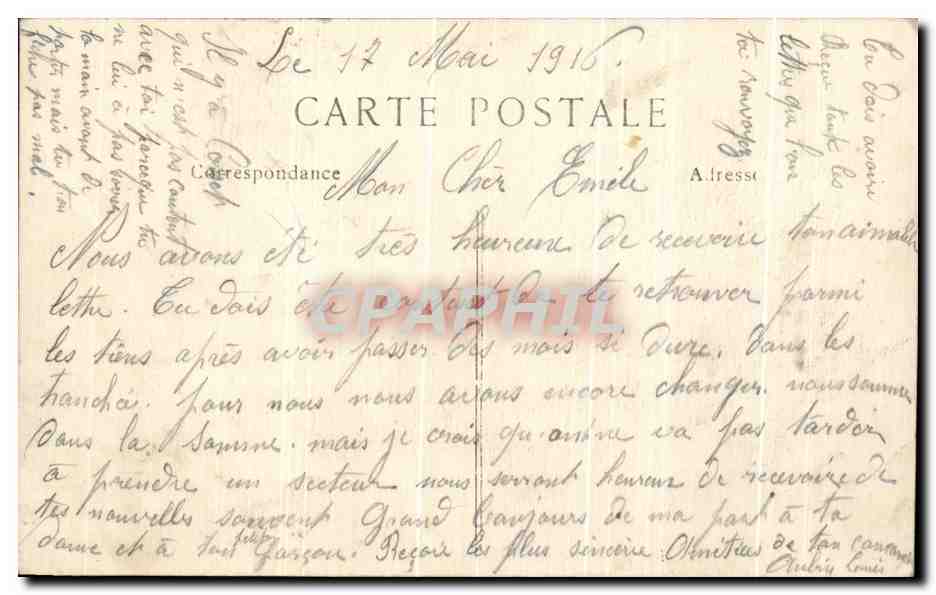 Le 17 Mai 1916.
CARTE POSTALE
Correspondance
Adresse
Mon Chèr Emile
Nous avons été très heureux de recevoire ton aimable
lettre. Tu dois être content de te retrouver parmi
les tiens après avoir passer des mois si dure. dans les
tranchée. pour nous nous avons encore changer. nous somme
dans la. Somme. mais je crois qu'on ne va pas tardér
à prendre un secteur nous serront heureux de recevoire de
tes nouvelles souvent Grand bonjours de ma part à ta
dame et à ton petit Garçon. Reçoie les plus sincère Amitiés de ton camarade
Aubin Louis
Il y a
qui n'est pas content
avec toi parceque tu
ne lui a pas serrer
la main avant de
partir mais tu t'en
fiche pas mal.
Tu dois avoire
reçu toute les
lettres que l'on
t'a renvoyez
CPAPHIL